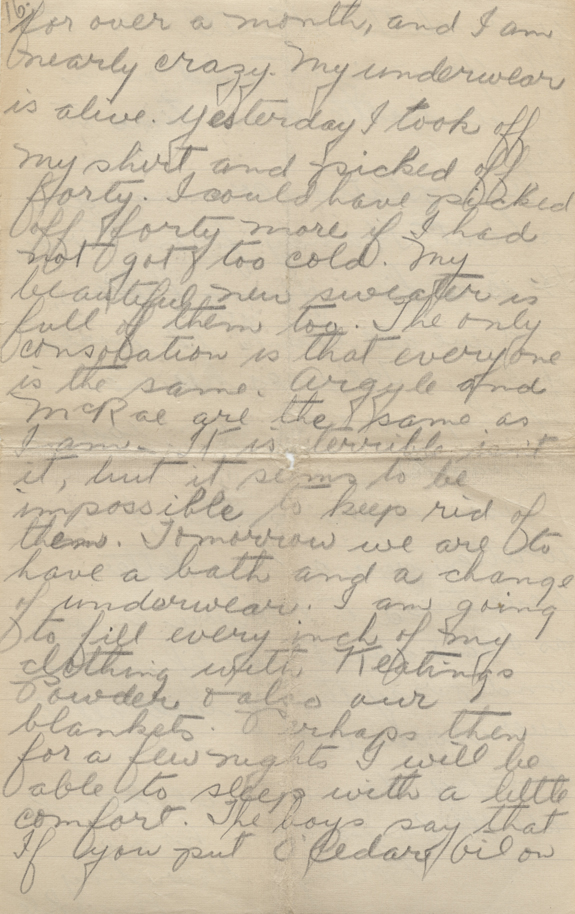 16.
for over a month, and I am
nearly crazy. My underwear
is alive. Yesterday I took off
my shirt and picked off
forty. I could have picked
off forty more if I had
not got too cold. My
beautiful new sweater is
full of them too. The only
consolation is that everyone
is the same. Argyle and
McRae are the same as
I am. It is terrible isn't
it, but it seems to be
impossible to keep rid of
them. Tomorrow we are to
have a bath and a change
of underwear. I am going
to fill every inch of my
clothing with Keatings
Powder & also our
blankets. Perhaps then
for a few nights I will be
able to sleep with a little
comfort. The boys say that
If you put Cedar oil on